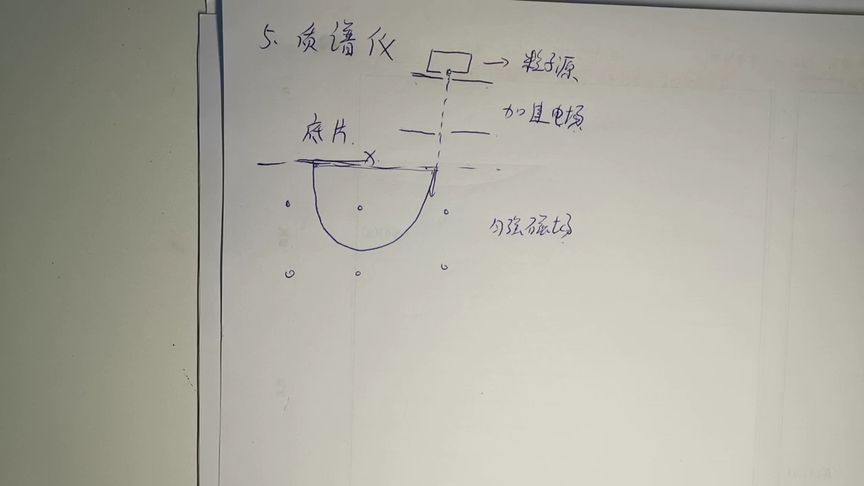 5. 质谱仪
→ 粒子源
加速电场
底片
x
匀强磁场